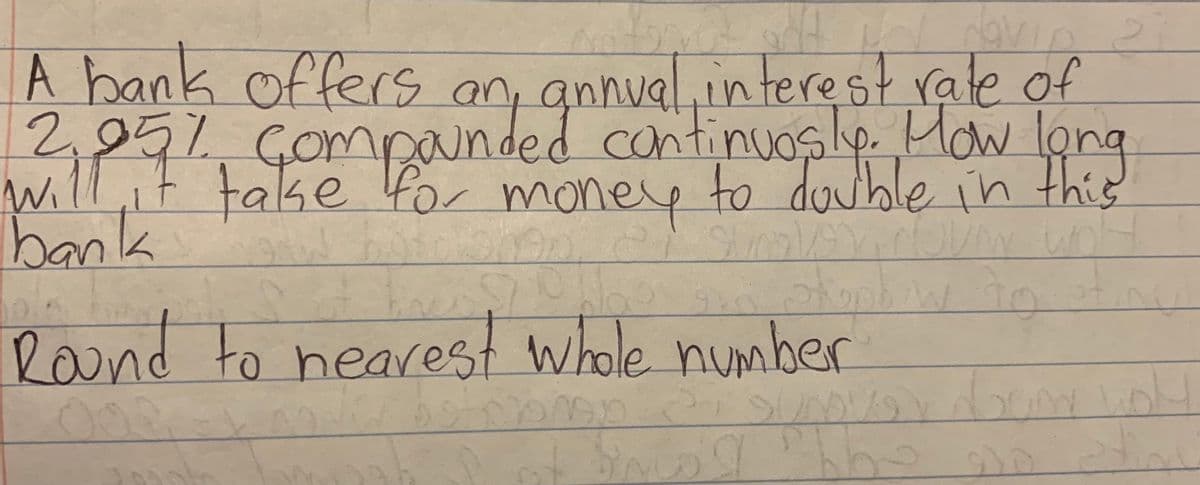 A bank offers an annual interest rate of
2.95% compounded continuosly. How long
will it take for money to double in this
bank
Round to nearest whole number